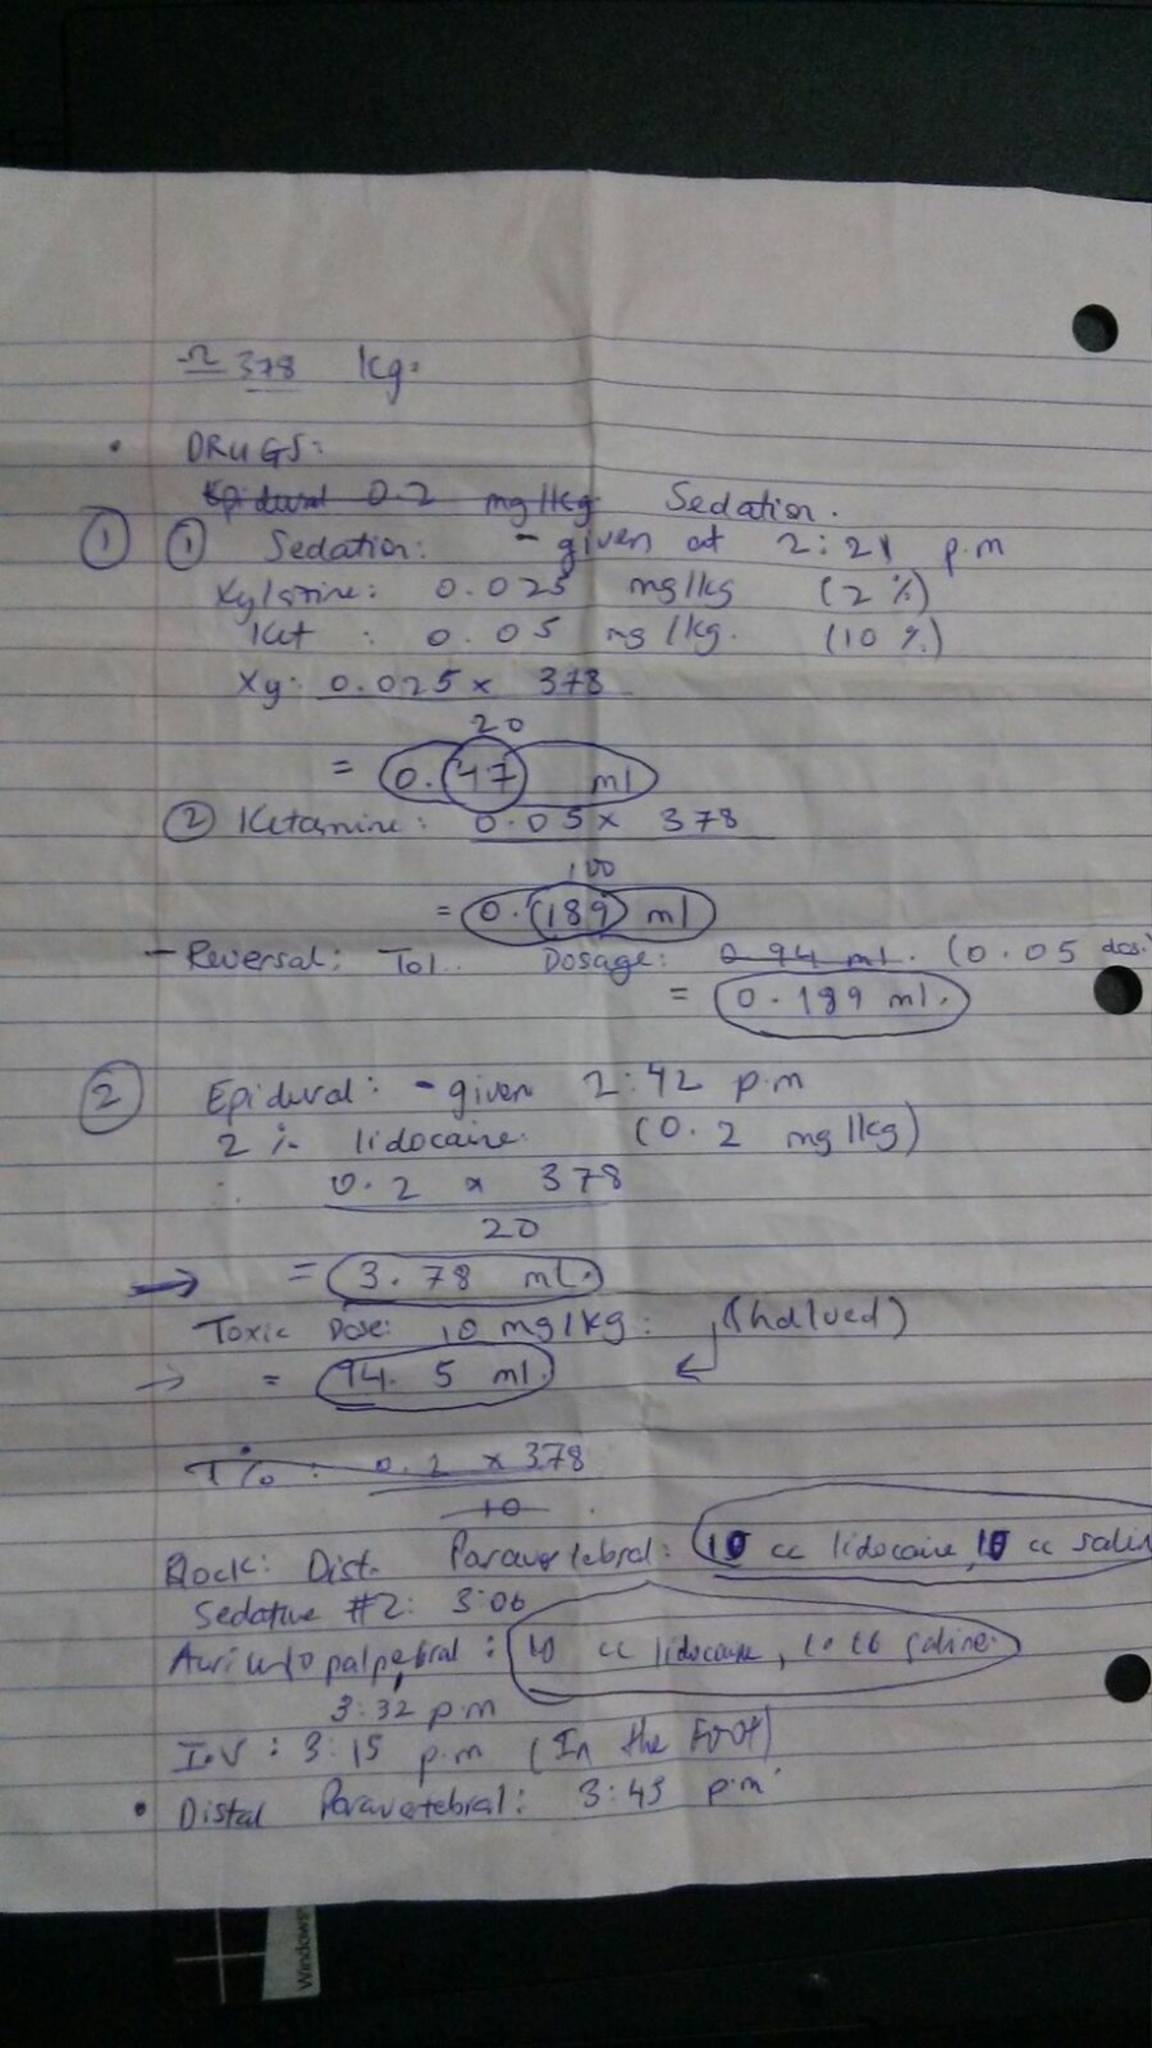 378 kg.
DRUGS:
Epidural 0.2 mg/kg Sedation.
① ① Sedation: - given at 2:21 p.m
Xylazine: 0.025 mg/kg (2%)
Ket : 0.05 mg/kg. (10%)
Xy: 0.025 x 378
20
= 0.47 ml
② Ketamine: 0.05 x 378
100
= 0.189 ml
- Reversal: Tol.. Dosage: 0.94 ml. (0.05 dos.
= 0.189 ml.
② Epidural: - given 2:42 p.m
2% lidocaine. (0.2 mg/kg)
∴ 0.2 x 378
20
→ = 3.78 ml.
Toxic Dose: 10 mg/kg: (halved)
→ = 94.5 ml.
1% : 0.2 x 378
10
Block: Dist. Paravertebral: 10 cc lidocaine, 10 cc salin
Sedative #2: 3:06
Auriculopalpebral : 10 cc lidocaine, 10 cc saline.
3:32 p.m
I.V : 3:15 p.m (In the Foot)
• Distal Paravertebral: 3:43 p.m
Windows